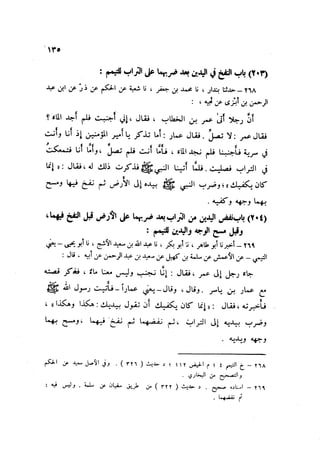 ١٣٥
(٢٠٣) باب النفخ في اليدين بعد ضربهما على التراب للتيمم :
٢٦٨ – حدثنا بندار ، نا محمد بن جعفر ، نا شعبة عن الحكم عن ذر عن ابن عبد
الرحمن بن أبزى عن أبيه ، :
أن رجلاً أتى عمر بن الخطاب ، فقال ، إني أجنبت فلم أجد الماء ؟
فقال عمر : لا تصل . فقال عمار : أما تذكر يا أمير المؤمنين إذ أنا وأنت
في سرية فأجنبنا فلم نجد الماء ، فأما أنت فلم تصل ، وأما أنا فتمعكت
في التراب فصليت . فلما أتينا النبي ﷺ فذكرت ذلك له ، فقال : « إنما
كان يكفيك » ، وضرب النبي ﷺ بيده إلى الأرض ثم نفخ فيها ومسح
بها وجهه وكفيه .
(٢٠٤) باب نفض اليدين من التراب بعد ضربهما على الأرض قبل النفخ فيهما ،
وقبل مسح الوجه واليدين للتيمم :
٢٦٩ – أخبرنا أبو طاهر ، نا أبو بكر ، نا عبد الله بن سعيد الأشج ، نا أبو يحيى – يعني
التيمي – عن الأعمش عن سلمة بن كهيل عن سعيد بن عبد الرحمن عن أبيه . قال :
جاء رجل إلى عمر ، فقال : إنا نجنب وليس معنا ماء ، فذكر قصته
مع عمار بن ياسر . وقال . وقال – يعني عماراً – فأتيت رسول الله ﷺ
فأخبرته ، فقال : « إنما كان يكفيك أن تقول بيديك : هكذا وهكذا » ،
وضرب بيديه إلى التراب ، ثم نفضهما ثم نفخ فيهما ، ومسح بهما
وجهه ويديه .
٢٦٨ – خ التيمم ٤ ؛ م الحيض ١١٢ ؛ د حديث ( ٣٢٦ ) . وفي الأصل سعيد عن الحكم
والتصحيح من البخاري .
٢٦٩ – اسناده صحيح . د حديث ( ٣٢٢ ) من طريق سفيان عن سلمة . وليس فيه :
ثم نفضهما .